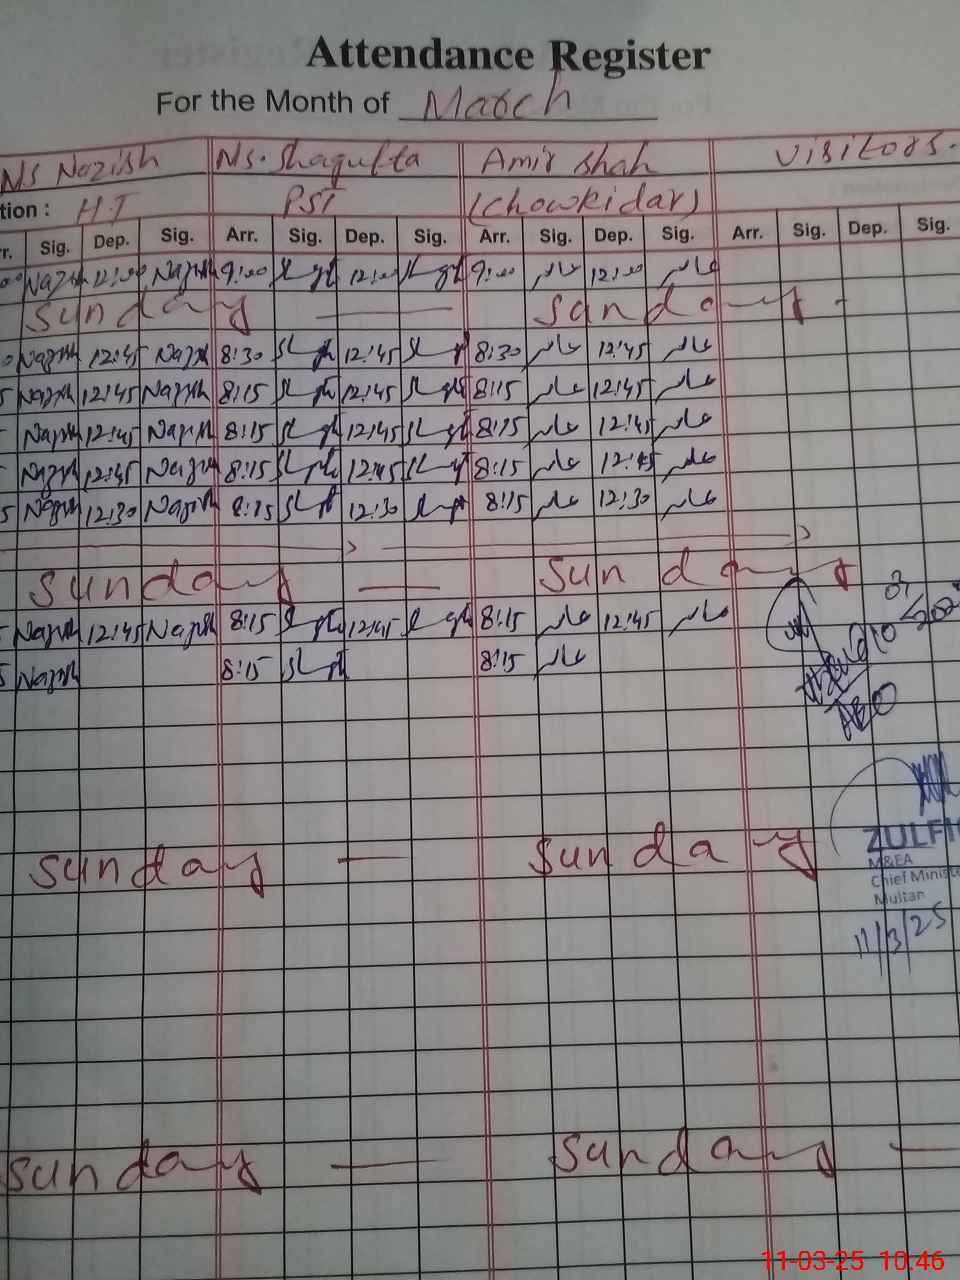 Attendance Register
For the Month of March
Ms Nazish Ms. Shagufta Amir Shah Visitors.
tion : H.T PST (Chowkidar)
r. Sig. Dep. Sig. Arr. Sig. Dep. Sig. Arr. Sig. Dep. Sig. Arr. Sig. Dep. Sig.
Nazish 12:00 Nazish 9:00 12:00 9:00 عامر 12:00 عامر
Sunday — Sunday -
Nazish 12:45 Nazish 8:30 12:45 8:30 عامر 12:45 عامر
5 Nazish 12:45 Nazish 8:15 12:45 8:15 عامر 12:45 عامر
Nazish 12:45 Nazish 8:15 12:45 8:15 عامر 12:45 عامر
Nazish 12:45 Nazish 8:15 12:45 8:15 عامر 12:45 عامر
5 Nazish 12:30 Nazish 8:15 12:30 8:15 عامر 12:30 عامر
Sunday — Sunday
Nazish 12:45 Nazish 8:15 12:45 8:15 عامر 12:45 عامر
5 Nazish 8:15 8:15 عامر
AEO
Sunday — Sunday
ZULFI
M&EA
Chief Minist
Multan
11/3/25
Sunday — Sunday —
11-03-25 10:46